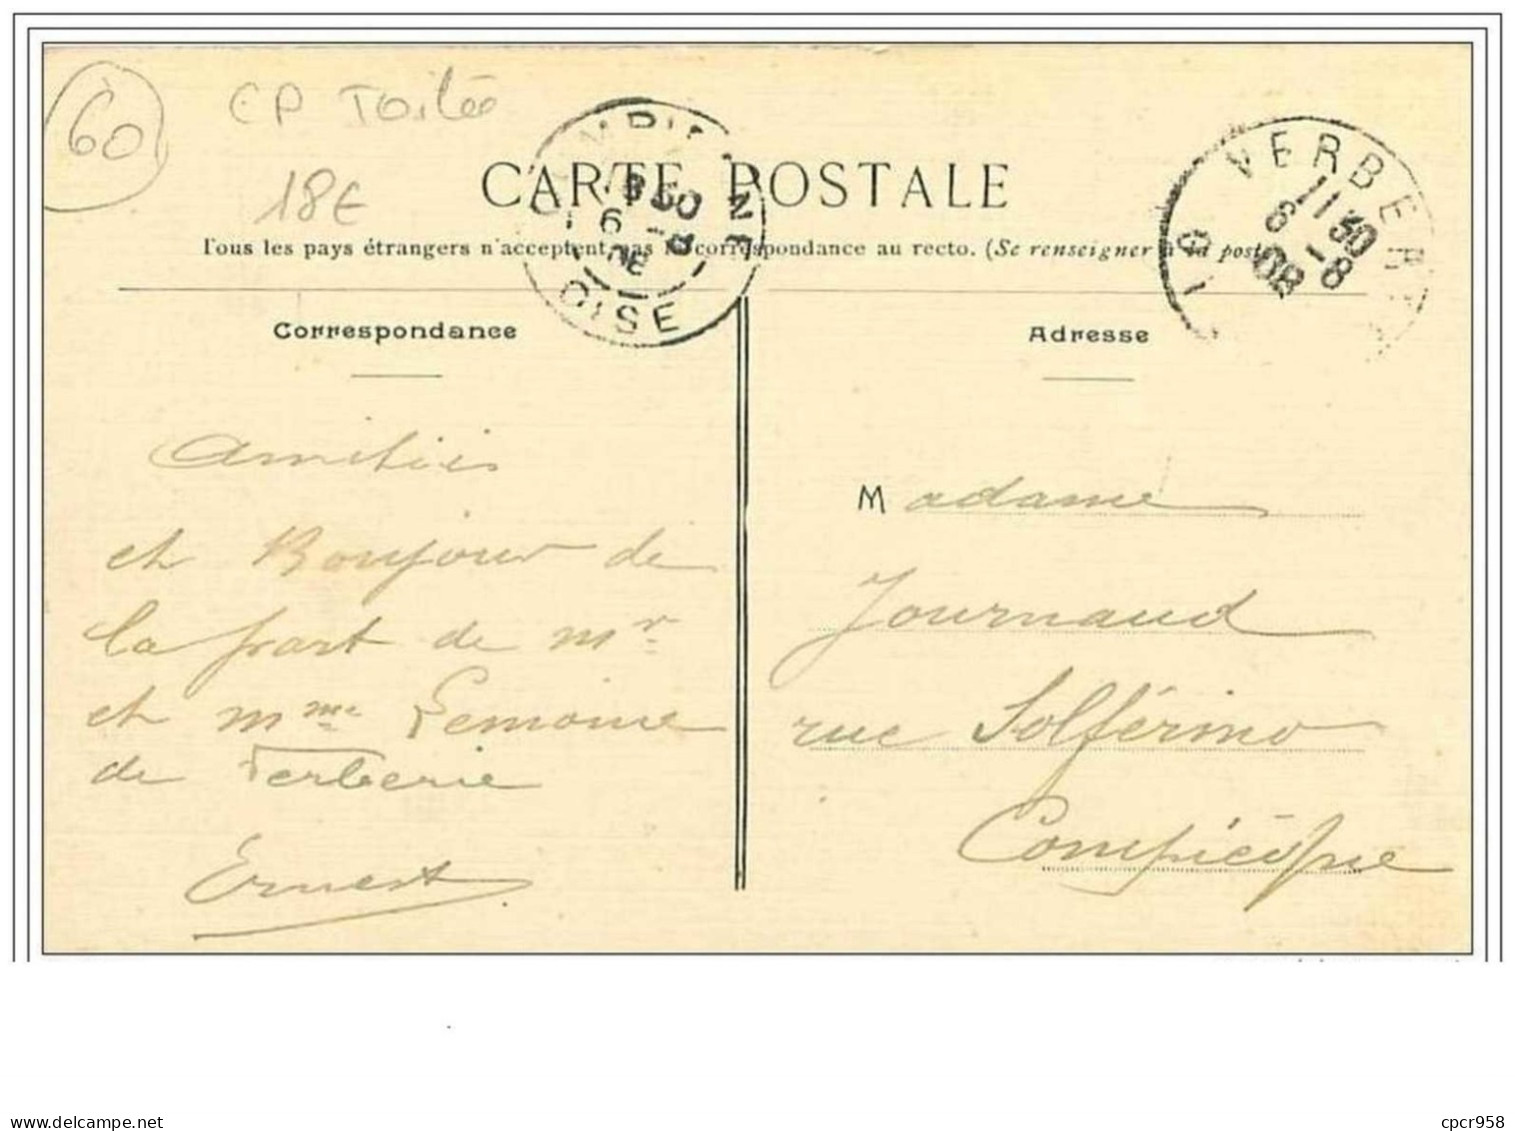 60
CP Toilée
18€
CARTE POSTALE
Tous les pays étrangers n'acceptent pas la correspondance au recto. (Se renseigner à la poste)
COMPIEGNE
6 -8
08
OISE
VERBERIE
11 30
6 -8
08
Correspondance
Adresse
Amitiés
et Bonjour de
la part de Mr
et Mme Lemoine
de Verberie
Ernest
Madame
Journaud
rue Solférino
Compiègne
delcampe.net
cpcr958